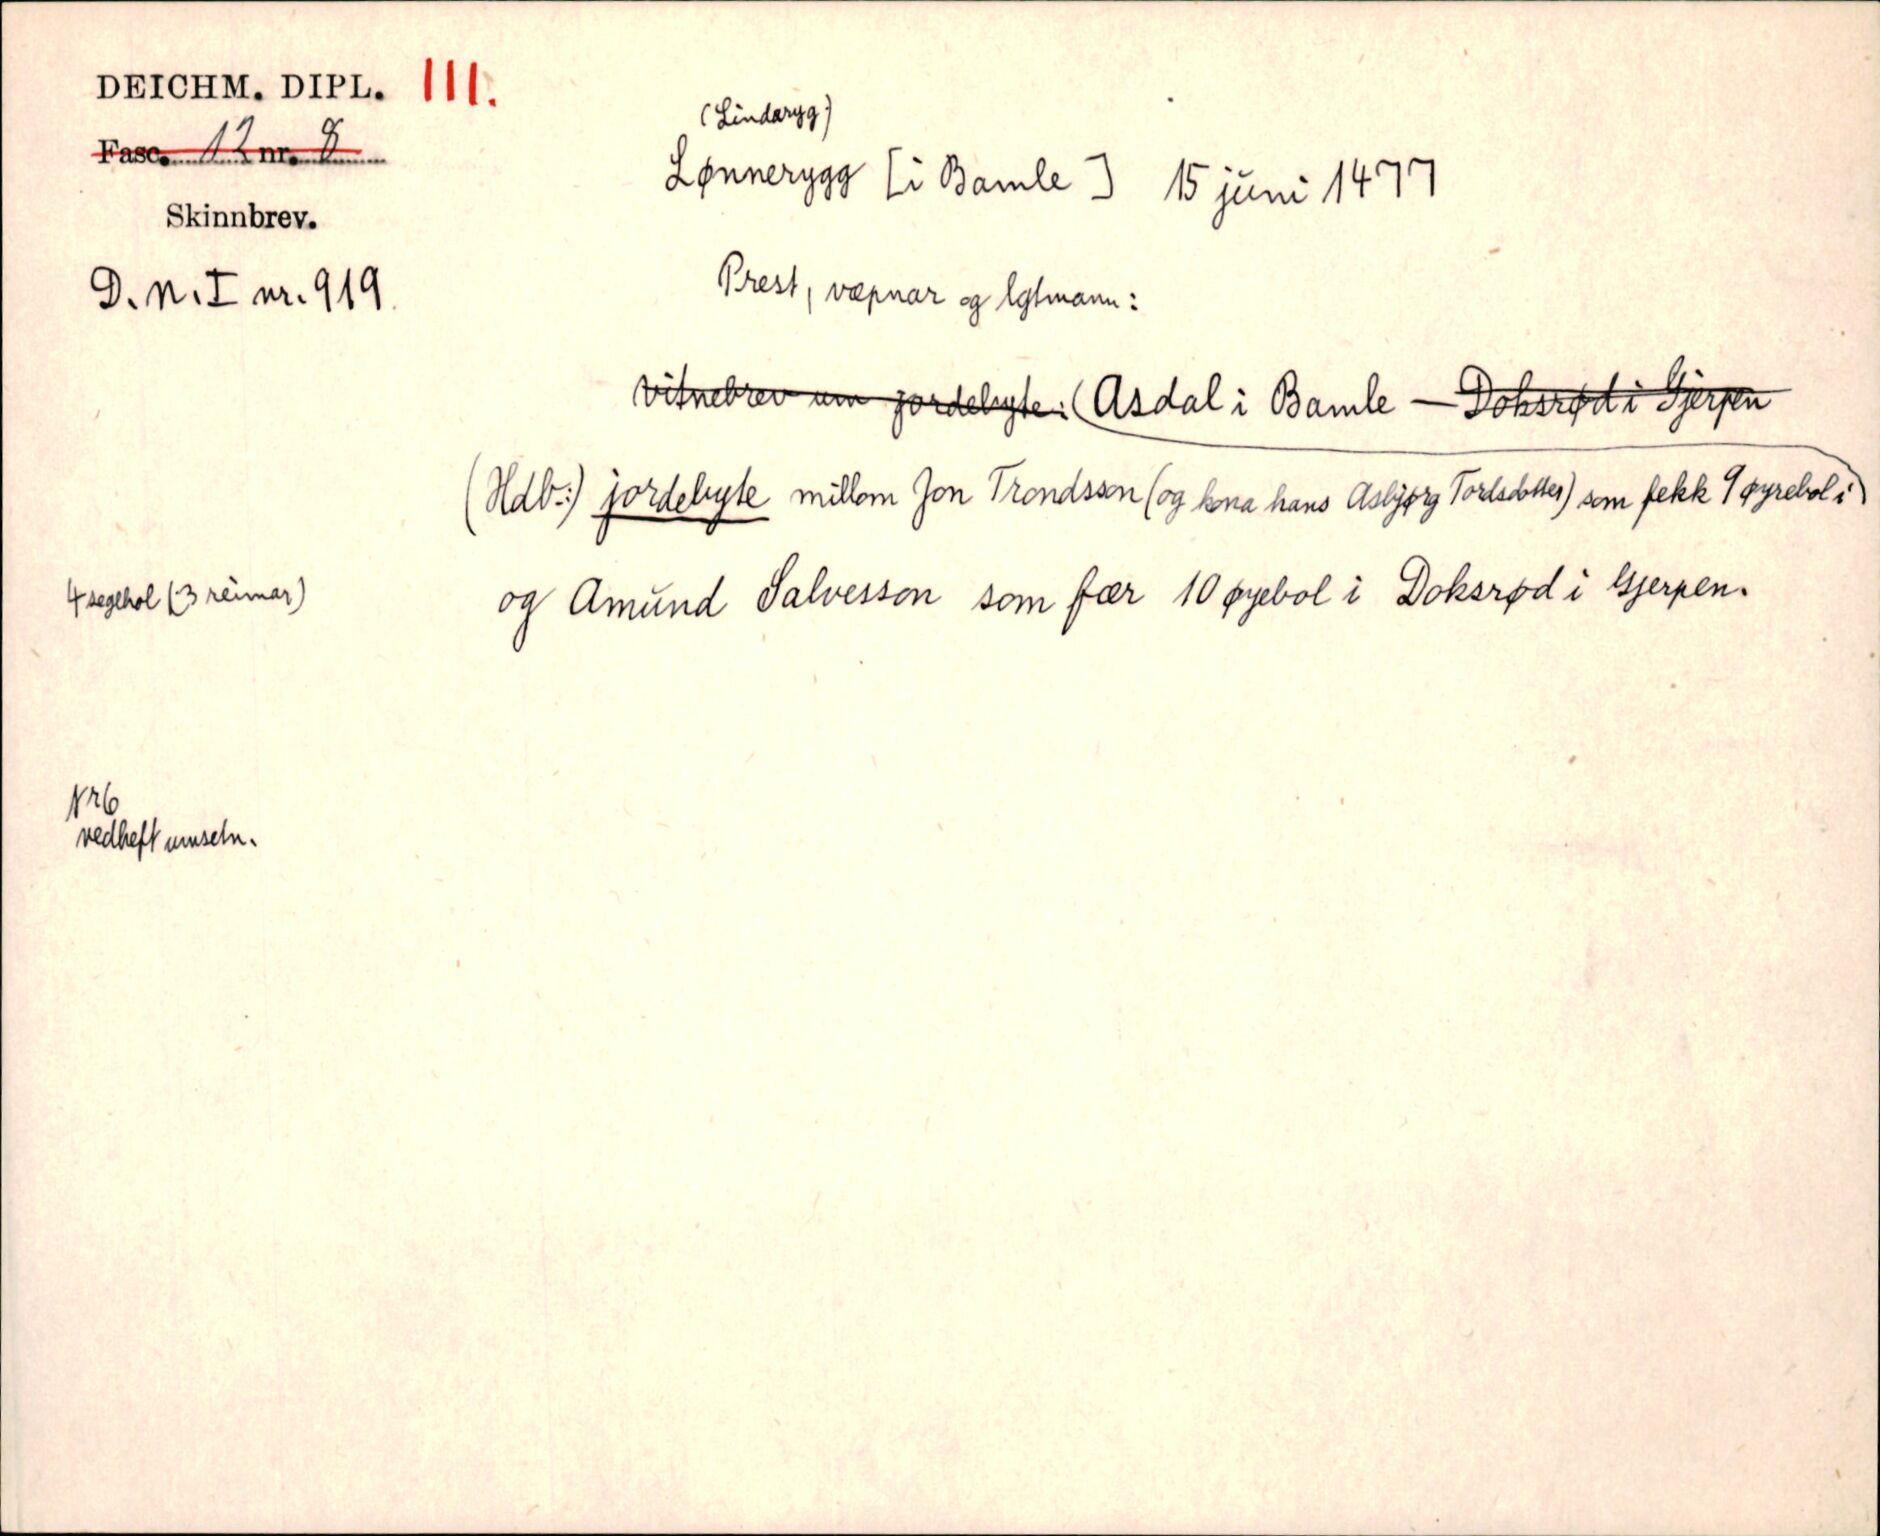 DEICHM. DIPL. 111.
Fasc. 12 nr. 8
Skinnbrev.
D. N. I nr. 919
(Lindaryg)
Lønnerygg [i Bamle] 15 juni 1477
Prest, væpnar og lgtmann:
Vitnebrev um jordebyte: (Asdal i Bamle — Doksrød i Gjerpen
(Hdb:) jordebyte millom Jon Trondsson (og kona hans Asbjørg Tordsdotter) som fekk 9 øyrebol i
4 segehol (3 reimar)
og Amund Salvesson som fær 10 øyebol i Doksrød i Gjerpen.
Nr 6
vedheft umsetn.